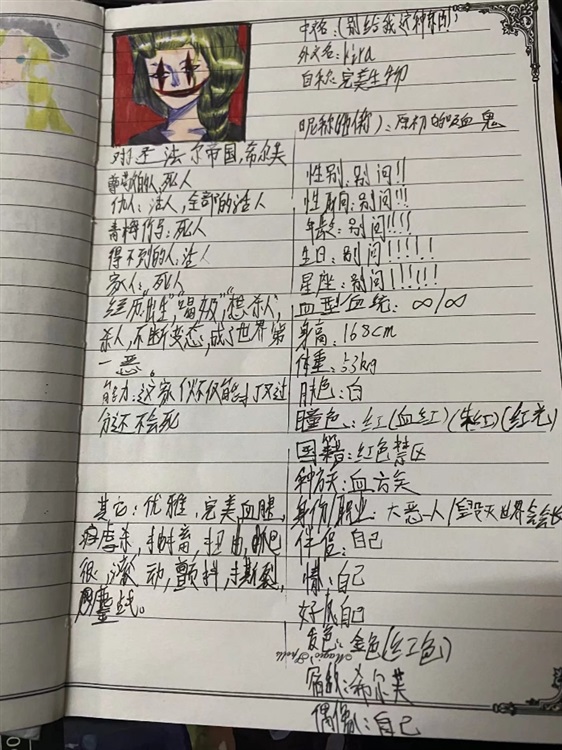 中文名:(别给我这种东西!)
外文名:kira
自称:完美生物
昵称(绰号):原初的吸血鬼
性别:别问!!
性取向:别问!!!
年龄:别问!!!!
生日:别问!!!!!
星座:别问!!!!!!
血型血统:∞/∞
身高:168cm
体重:53kg
肤色:白
瞳色:红(血红)(朱红)(红光)
国籍:红色禁区
种族:血族
身份/职业:大恶人/毁灭世界会会长
伴侣:自己
情:自己
好友自己
发色:金色(红色)
Magic Spell
宿敌:希尔芙
偶像:自己
法尔帝国,希尔芙
的人,死人
仇人:法人,全部的法人
青梅竹马:死人
得不到的人:法人
家人:死人
经历出生,"喝奶","想杀人",
杀人,不断变态,成了世界第
一恶。
能力:这家伙不仅能打又过
分还不会死
其它:优雅,完美,血腥,
虐杀,抽畜,扭曲,
很,滚动,颤抖,撕裂,
鏖战。